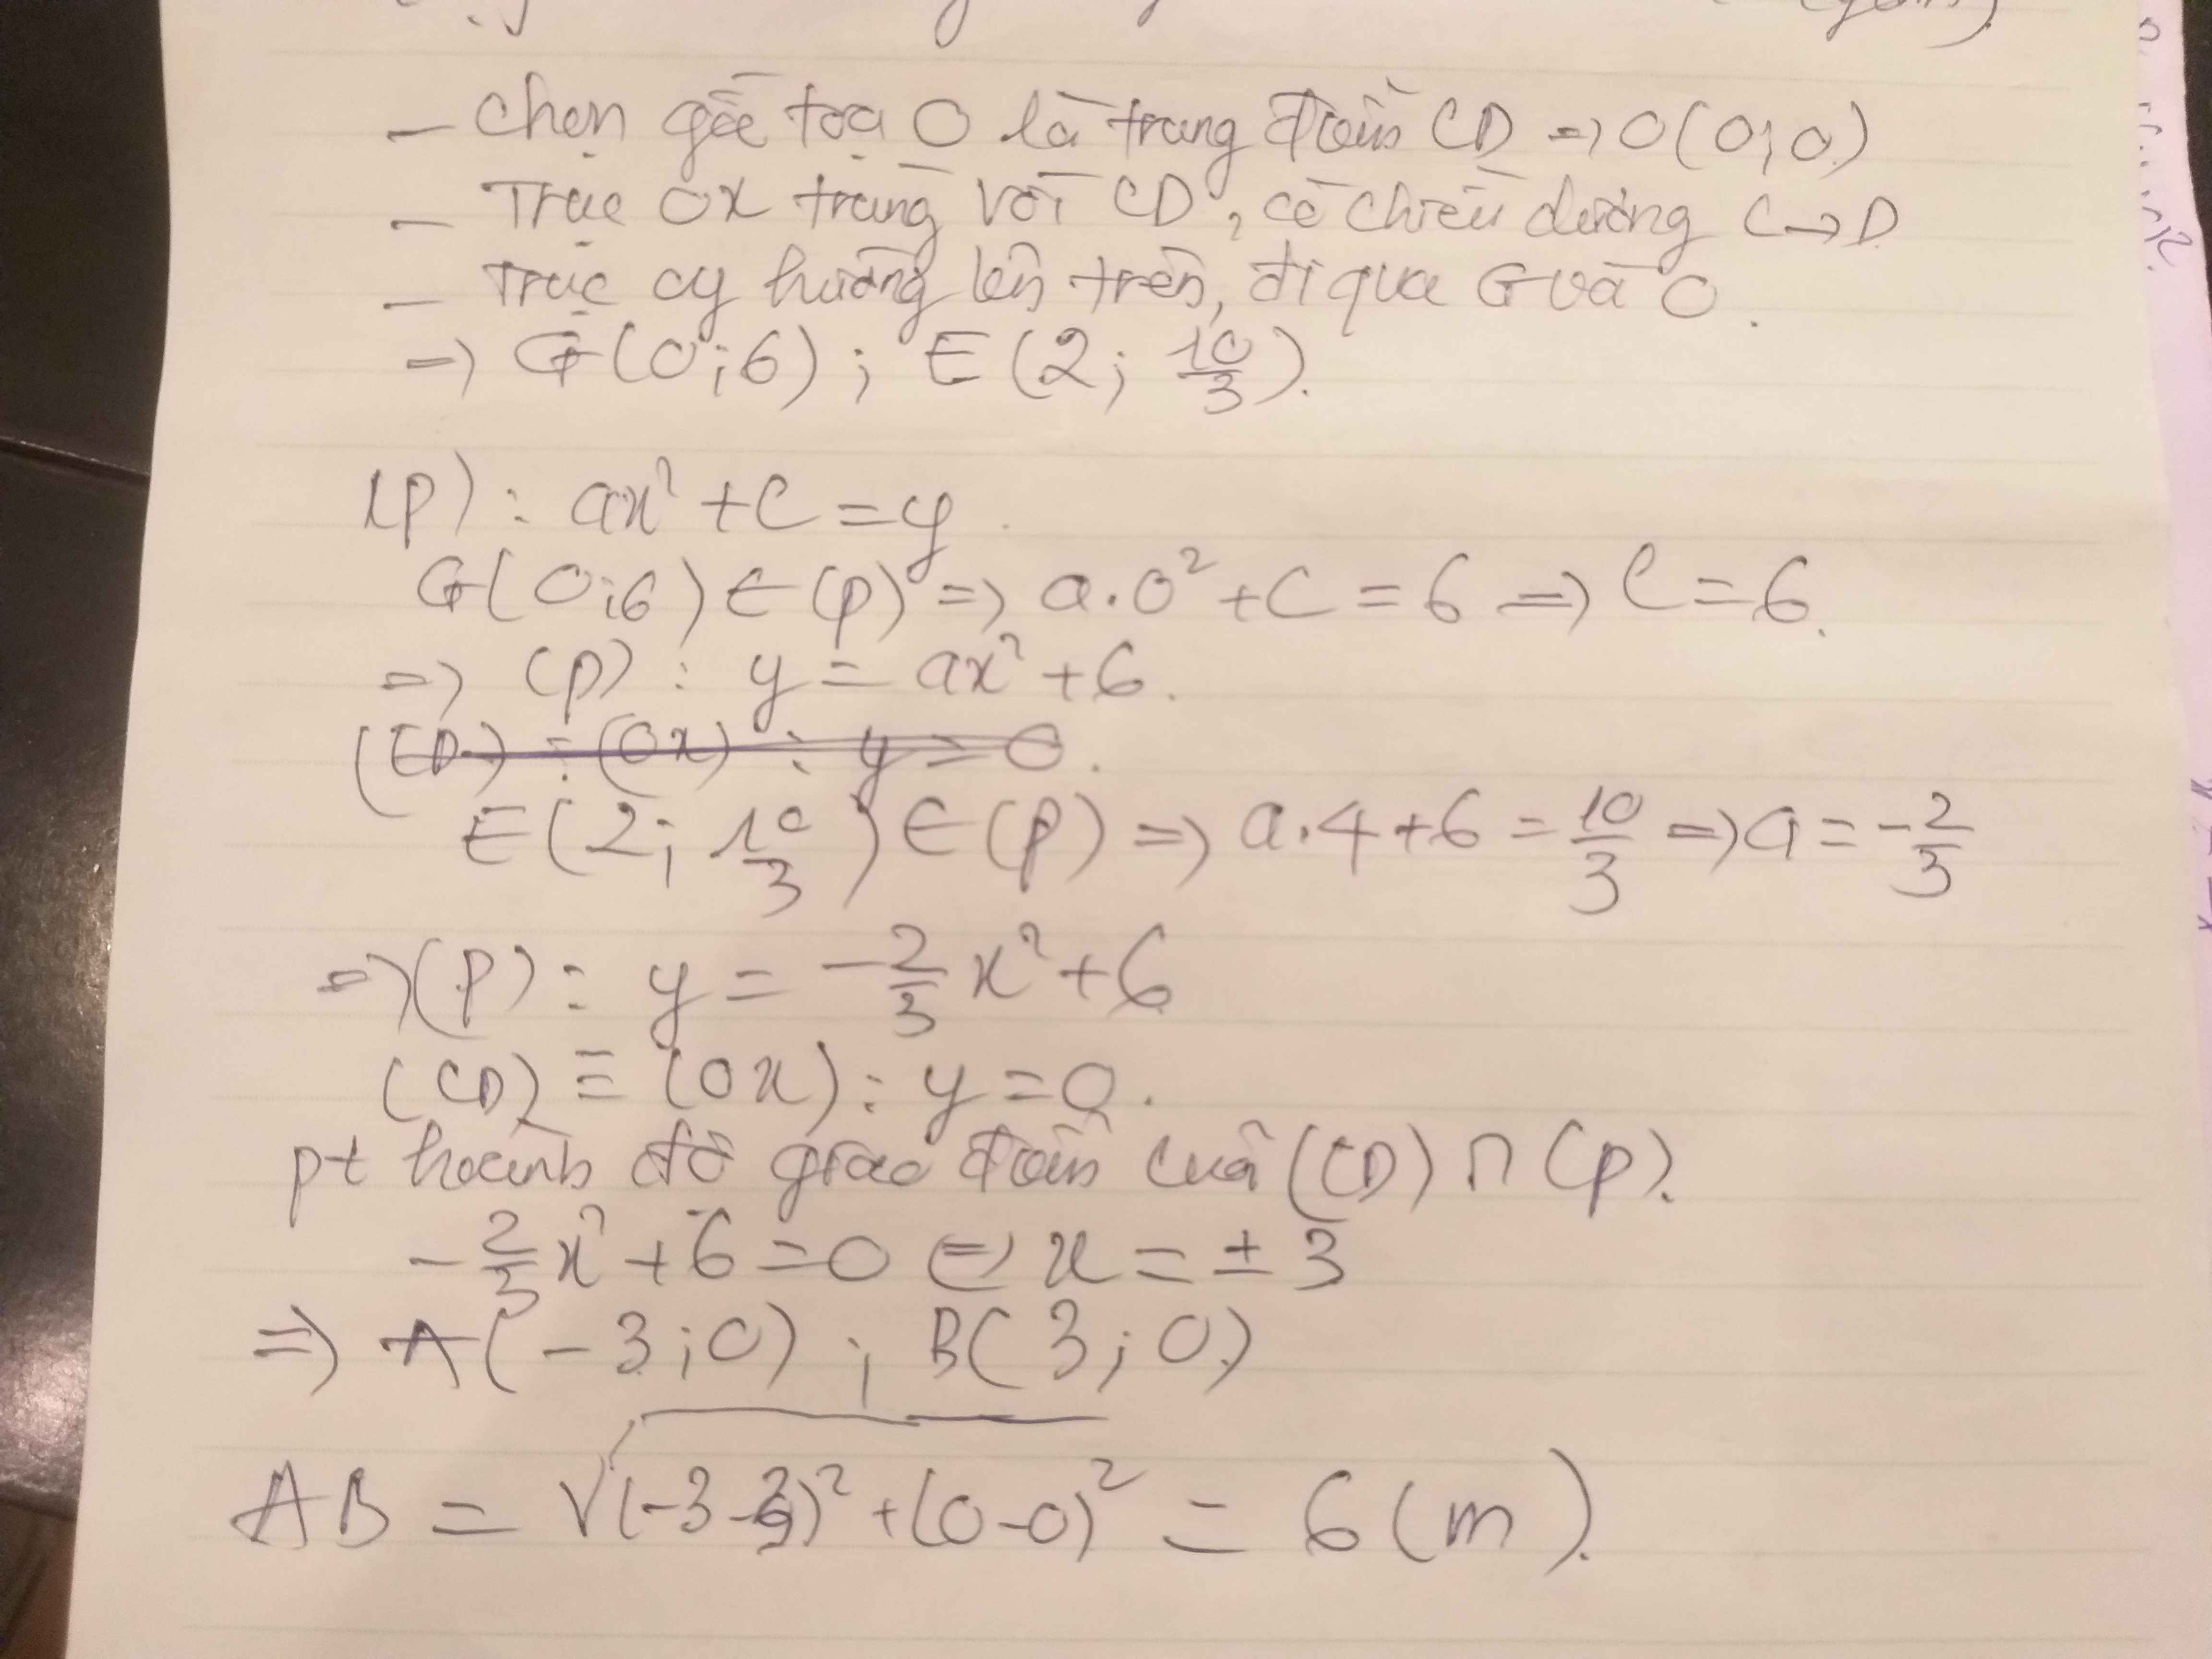 - Chọn gốc toạ O là trung điểm CD => O(0;0)
- Trục Ox trùng với CD, có chiều dương C→D
- Trục oy hướng lên trên, đi qua G và O.
=> G(0;6); E(2; 10/3).
(P): ax² + C = y
G(0;6) ∈ (P) => a.0² + C = 6 => C = 6.
=> (P): y = ax² + 6.
(CD) : (Ox) : y = 0.
E(2; 10/3) ∈ (P) => a.4 + 6 = 10/3 => a = -2/3
=> (P): y = -2/3 x² + 6
(CD) ≡ (Ox): y = 0.
pt hoành độ giao điểm của (CD) ∩ (P).
-2/3 x² + 6 = 0 <=> x = ± 3
=> A(-3;0); B(3;0)
AB = √((-3-3)² + (0-0)²) = 6 (m).